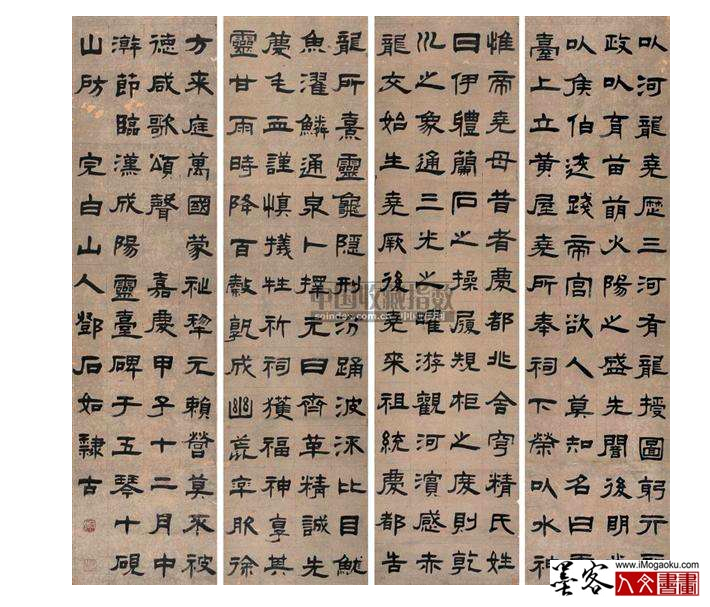 以河龍堯歷三河有龍授圖躬行
政以育苗萌火陽之盛先聞後明
以侯伯迭踐帝宮欲人莫知名曰
臺上立黃屋堯所奉祠下榮以水神
惟帝堯母昔者慶都兆舍穹精氏姓
曰伊體蘭石之操履規柜之度則乾
川之象通三光之曜游觀河濱感赤
龍交始生堯厥後堯來祖統慶都告
龍所熹靈龜隱刑汾踊波比目魷
魚濯鱗通泉卜擇元日齊革精誠先
薦毛血謹慎犧牲祈祠獲福神享其
靈甘雨時降百穀孰成幽荒率服徐
方来庭萬國蒙祉黎元賴營莫不被
德咸歌頌聲 嘉慶甲子十二月中
澣節臨漢成陽靈臺碑于五琴十硯
山房 完白山人鄧石如隸古
中国收藏指数
墨客
www.iMogaoku.com
人文書畫